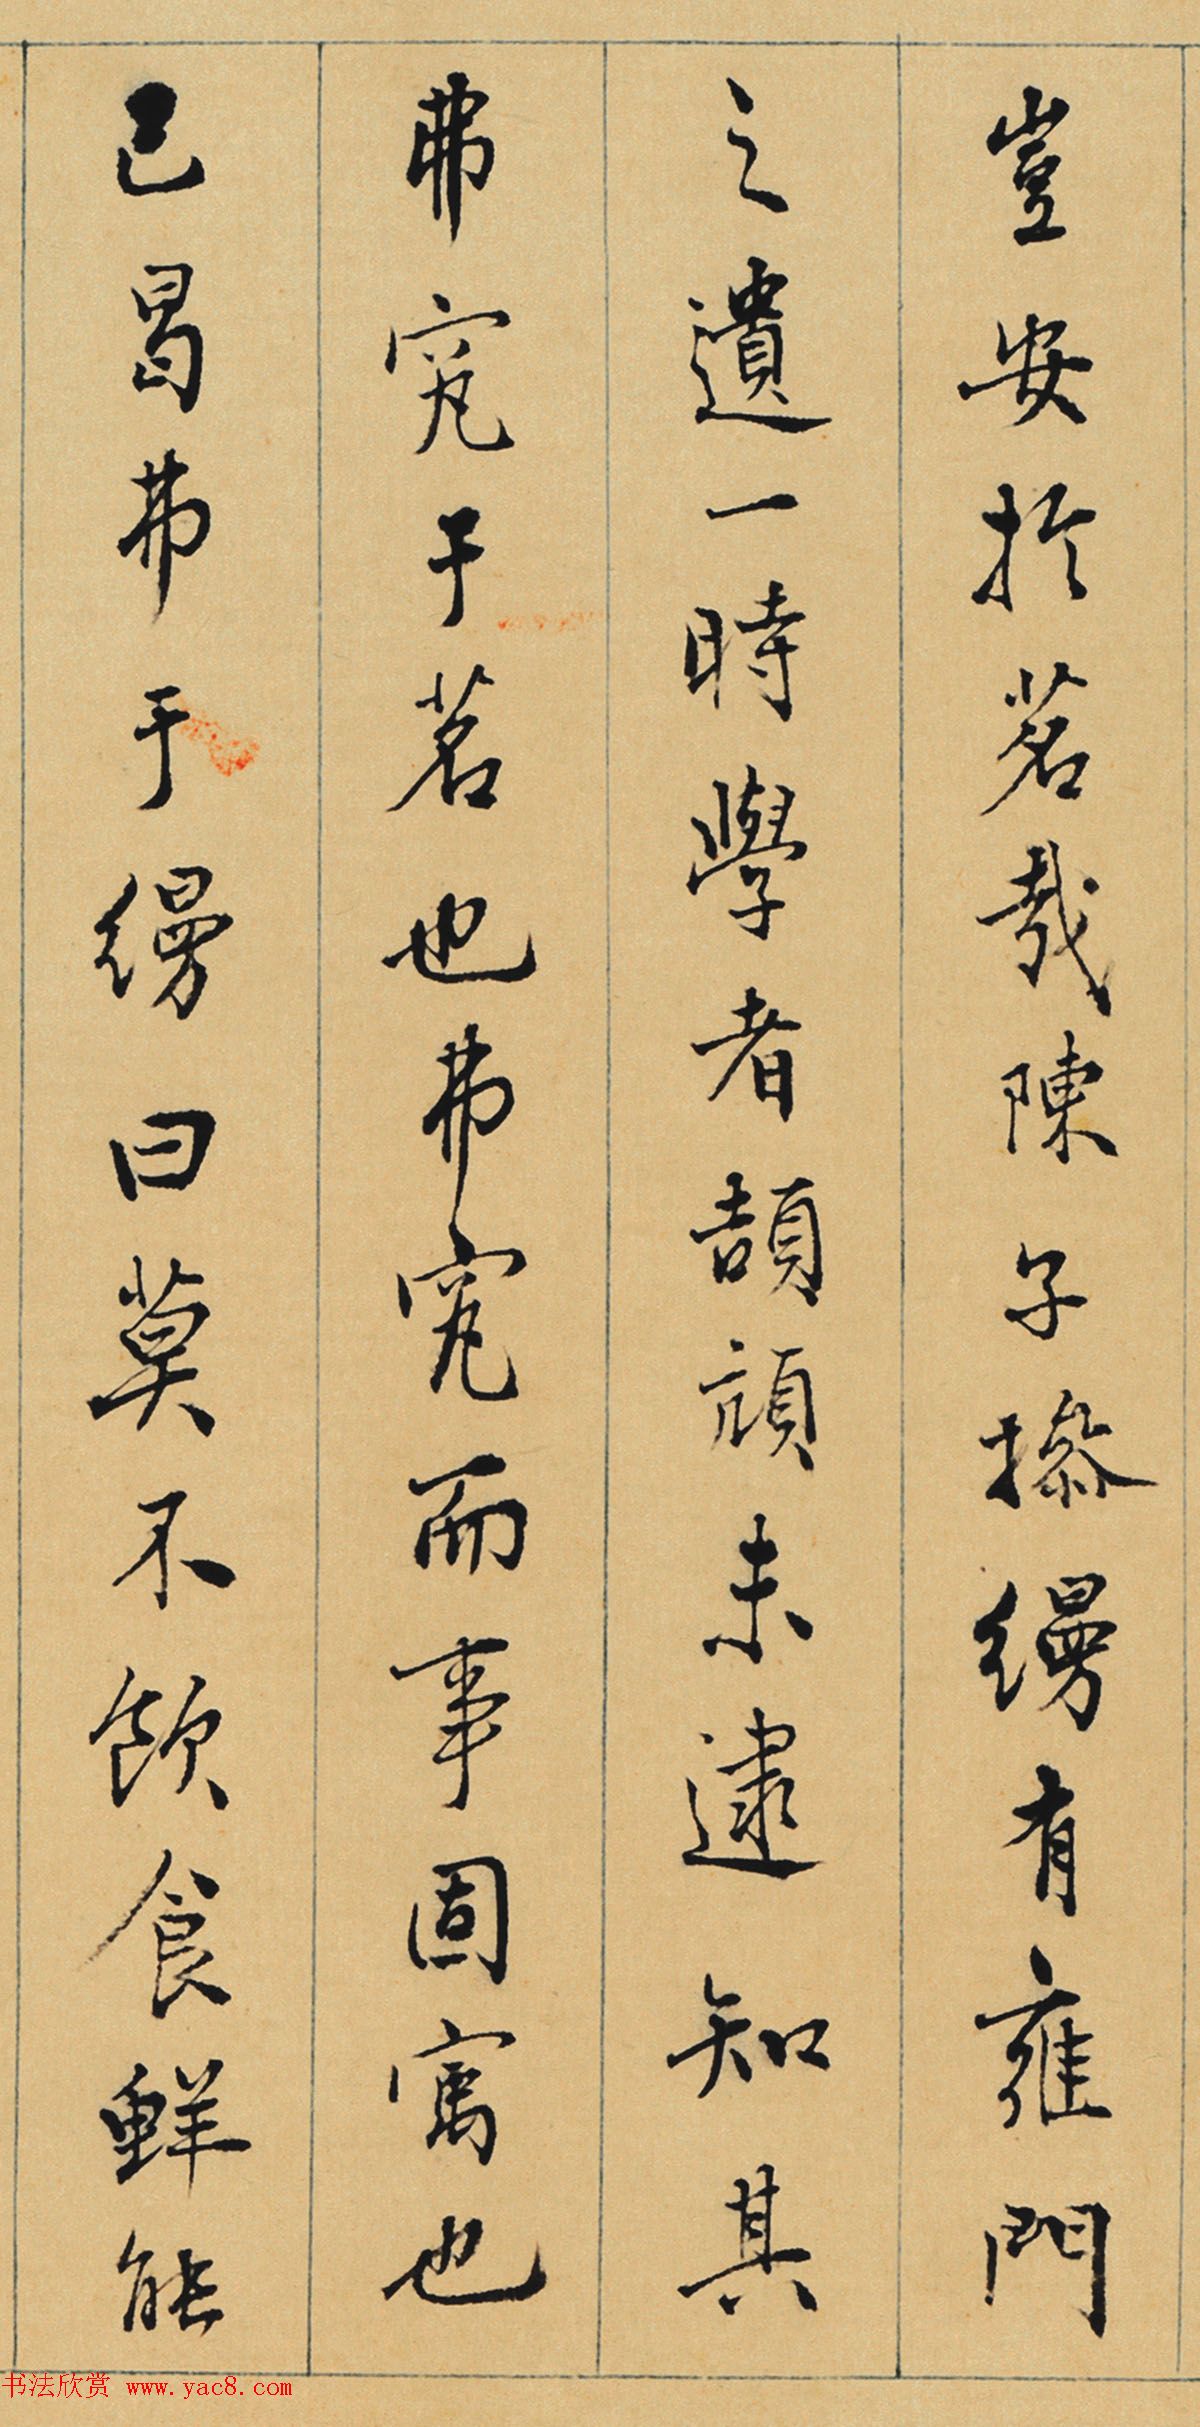 豈安扵茗哉陳子操縵有雍門
之遺一時學者頡頏未逮知其
弗究于茗也弗究而事固寓也
已曷弗于縵曰莫不飲食鮮能
书法欣赏 www.yac8.com